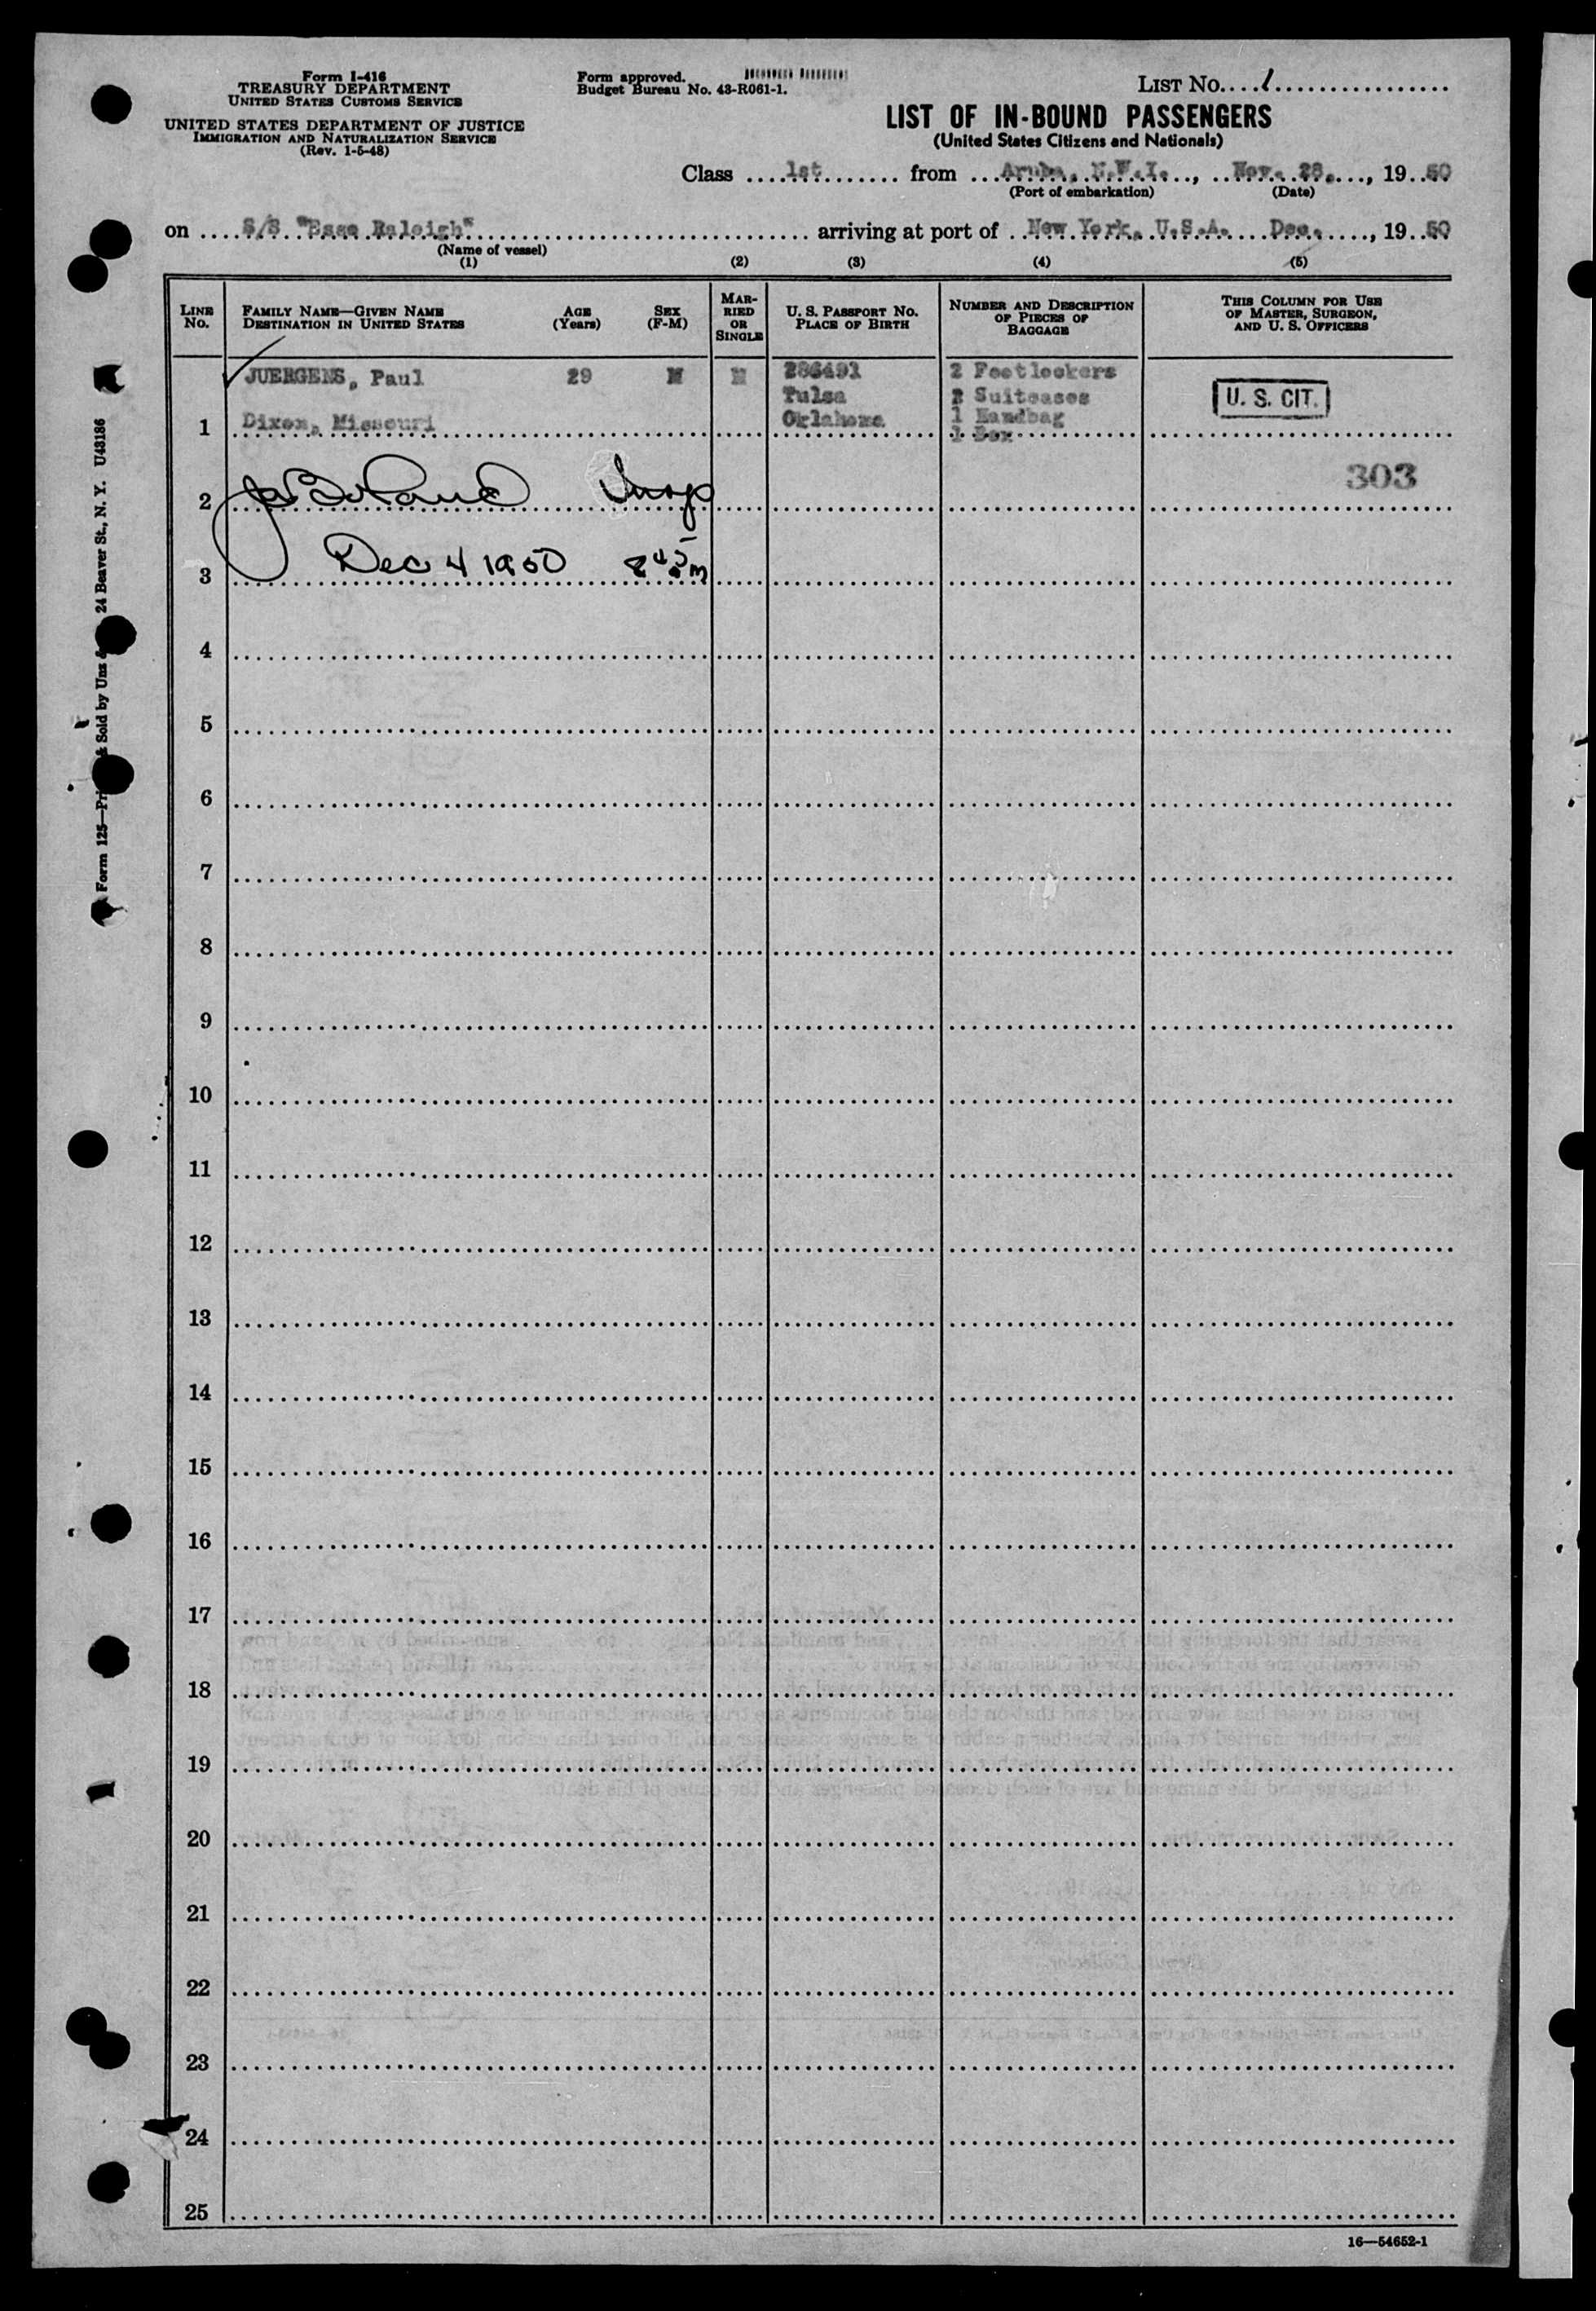 Form I-416
TREASURY DEPARTMENT
UNITED STATES CUSTOMS SERVICE
UNITED STATES DEPARTMENT OF JUSTICE
IMMIGRATION AND NATURALIZATION SERVICE
(Rev. 1-5-48)
Form approved.
Budget Bureau No. 43-R061-1.
LIST No. 1
LIST OF IN-BOUND PASSENGERS
(United States Citizens and Nationals)
Class 1st from Aruba, N.W.I., Nov. 28, 1950
(Port of embarkation) (Date)
on S/S "Esso Raleigh" arriving at port of New York, U.S.A. Dec. , 1950
(Name of vessel)
(1) (2) (3) (4) (5)
LINE No. FAMILY NAME—GIVEN NAME DESTINATION IN UNITED STATES AGE (Years) SEX (F-M) MARRIED OR SINGLE U. S. PASSPORT NO. PLACE OF BIRTH NUMBER AND DESCRIPTION OF PIECES OF BAGGAGE THIS COLUMN FOR USE OF MASTER, SURGEON, AND U. S. OFFICERS
JUERGENS, Paul 29 M M 286491 2 Footlockers
Tulsa 2 Suitcases U. S. CIT.
1 Dixon, Missouri Oklahoma 1 Handbag
1 Box
303
2 Insp
3 Dec 4 1950 8 45 m
4
5
6
7
8
9
10
11
12
13
14
15
16
17
18
19
20
21
22
23
24
25
16—54652-1
Form 125— Sold by Unz & 24 Beaver St., N. Y. U43186